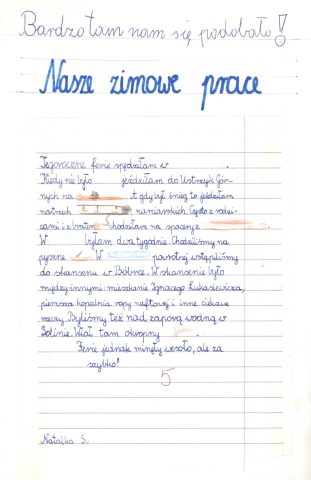 Bardzo tam nam się podobało!
Nasze zimowe prace
Tegoroczne ferie spędziłam w .
Kiedy nie było jeździłam do Ustrzyk Gór-
nych na . A gdy był śnieg to jeździłam
na trzech narciarskich. Często z rodzi-
cami i z bratem chodziłam na spacery z
W byłam dwa tygodnie. Chodziliśmy na
pyszne . W powrotnej wstąpiliśmy
do skansenu w Bóbrce. W skansenie było
między innymi: mieszkanie Ignacego Łukasiewicza,
pierwsza kopalnia ropy naftowej i inne ciekawe
rzeczy. Byliśmy też nad zaporą wodną w
Solinie. Wiał tam okropny .
Ferie jednak minęły wesoło, ale za
szybko!
5
Natalka S.